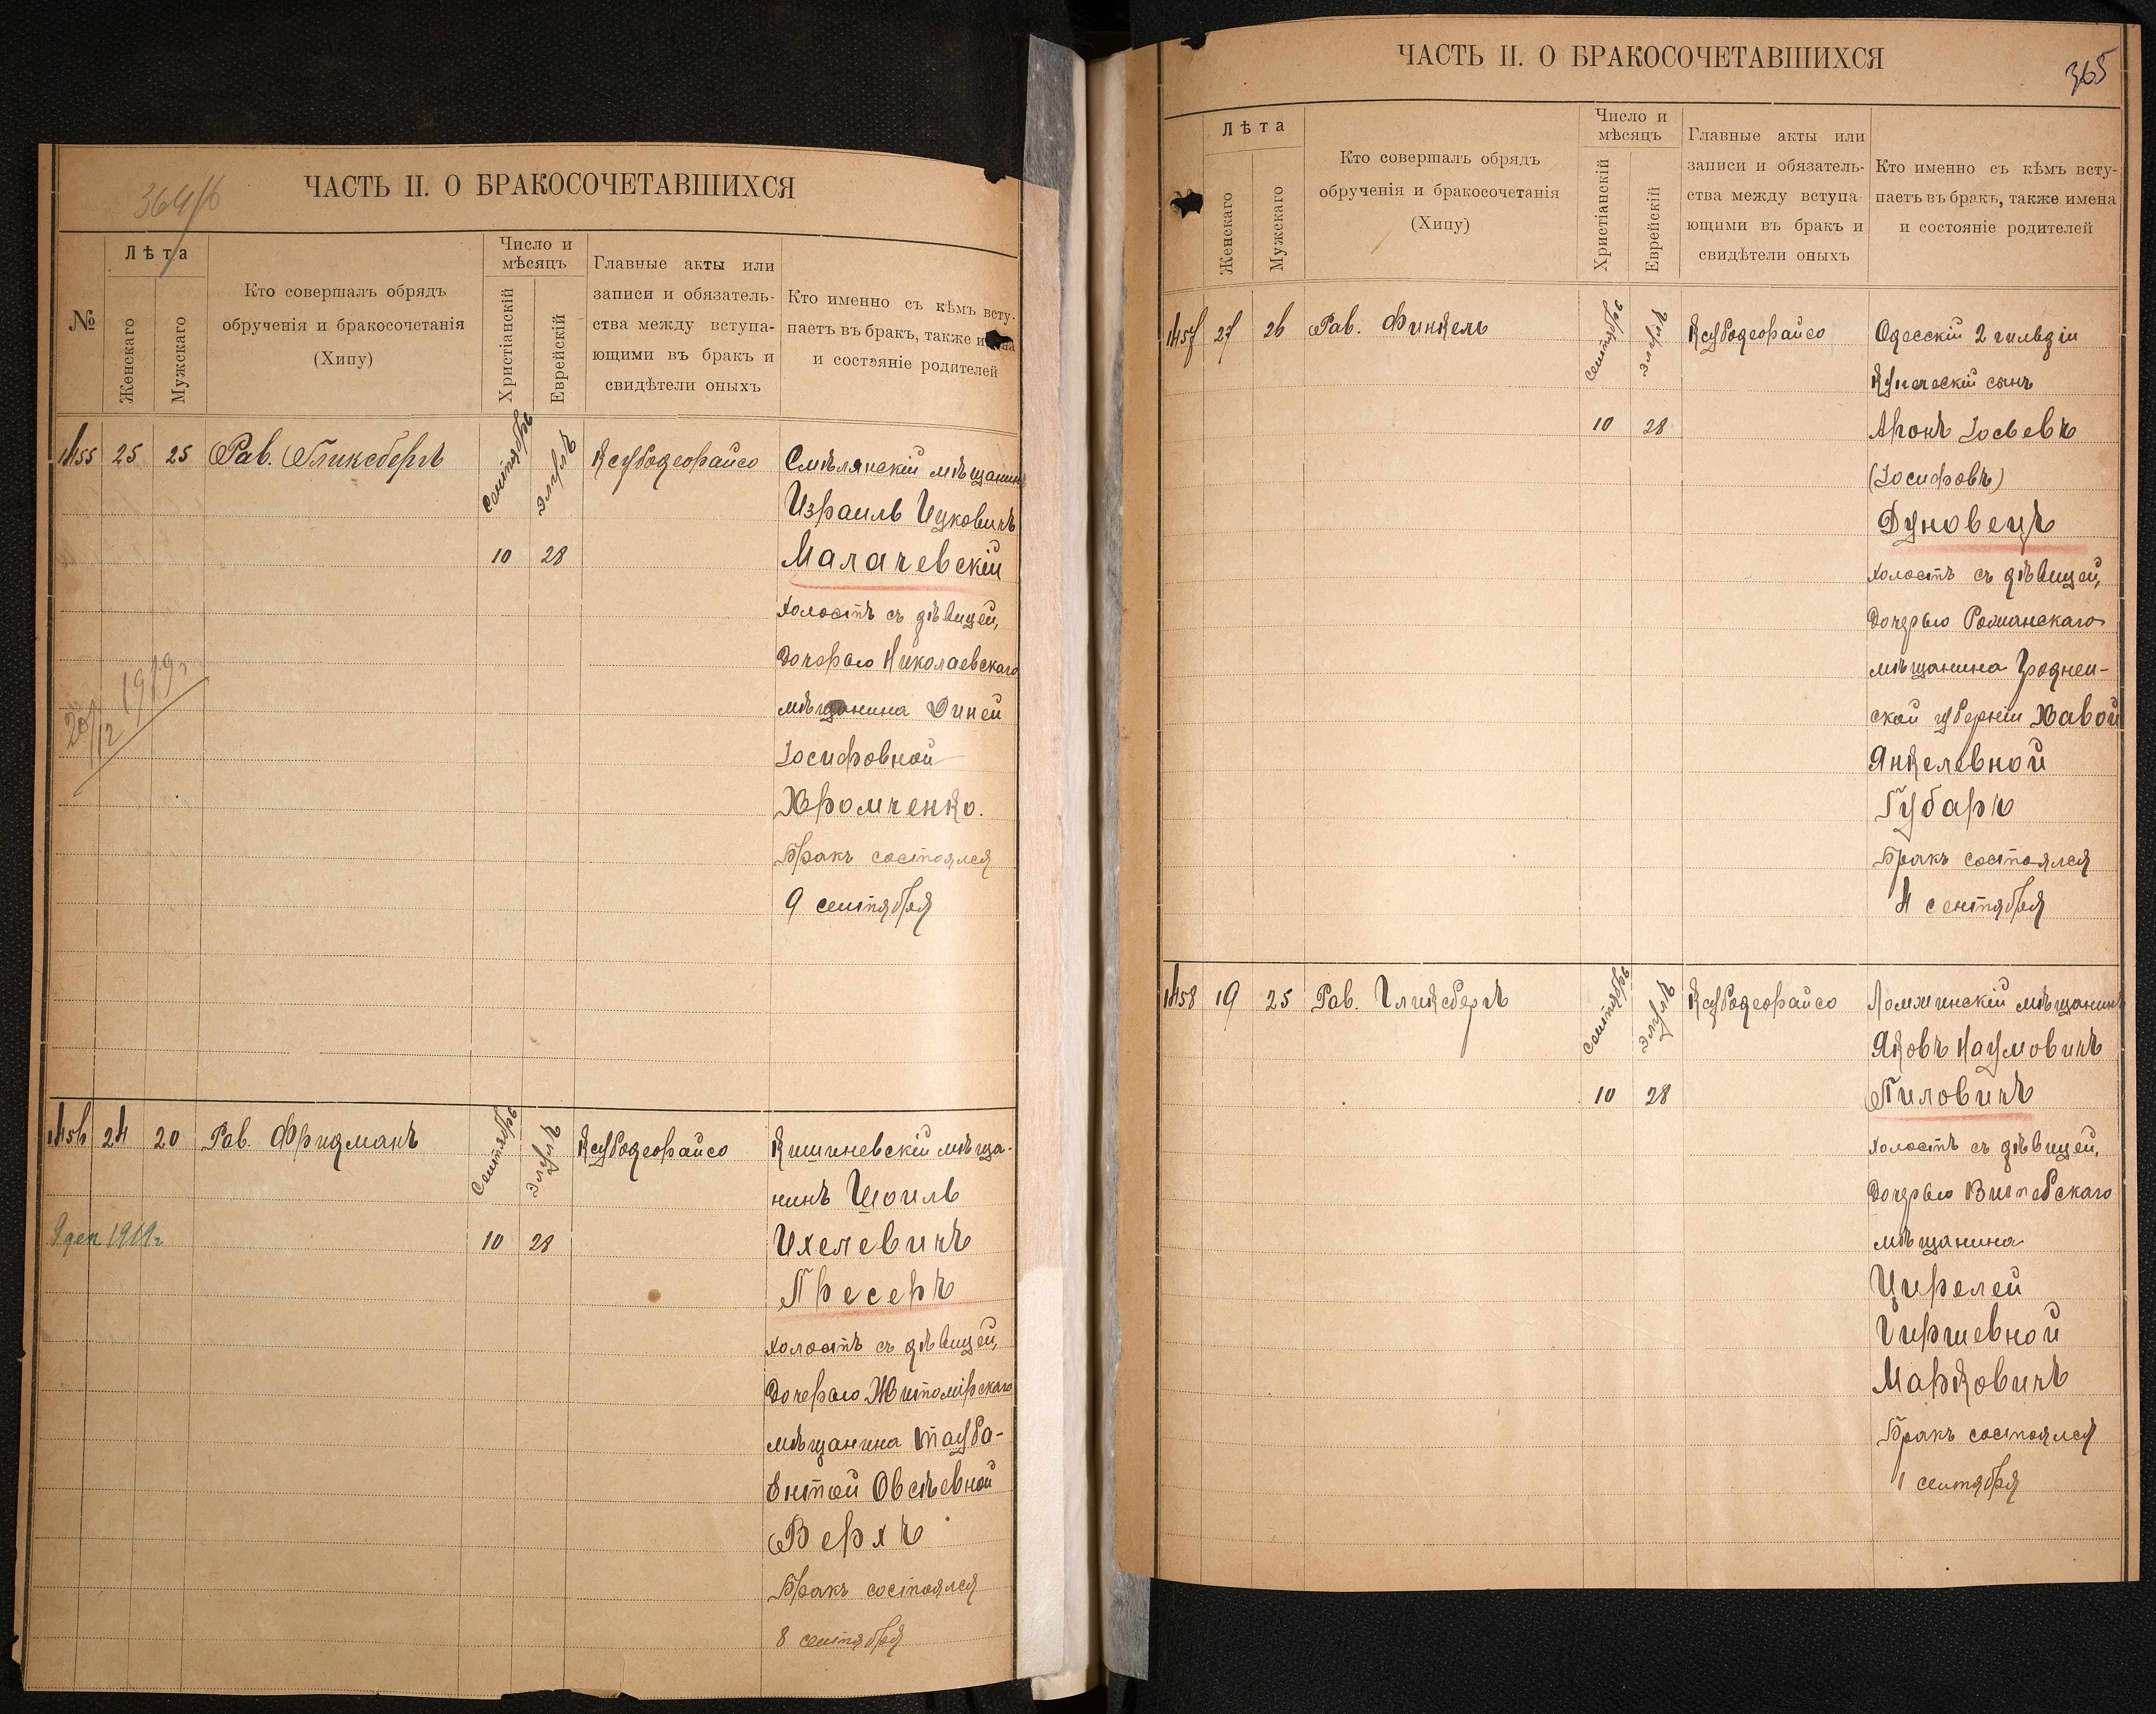 364/б
ЧАСТЬ II. О БРАКОСОЧЕТАВШИХСЯ
№
Лѣта
Женскаго
Мужскаго
Кто совершалъ обрядъ
обрученія и бракосочетанія
(Хипу)
Число и
мѣсяцъ
Христіанскій
Еврейскій
Главные акты или
записи и обязатель-
ства между вступа-
ющими въ бракъ и
свидѣтели оныхъ
Кто именно съ кѣмъ всту-
паетъ въ бракъ, также имена
и состояніе родителей
1455 25 25 Рав. Гликсбергъ Сентябрь Элулъ Ксубодеорайсо Смѣлянскій мѣщанинъ
Израиль Ицковичъ
10 28 Малачевскій
холостъ съ дѣвицей,
дочерью Николаевскаго
1919г
20/12
мѣщанина Диней
Іосифовной
Хромченко.
Бракъ состоялся
9 сентября
1456 24 20 Рав. Фридманъ Сентябрь Элулъ Ксубодеорайсо Кишиневскій мѣща-
нинъ Шоиль
9 дек. 1919г. 10 28 Ихелевичъ
Пресеръ
холостъ съ дѣвицей,
дочерью Житомірскаго
мѣщанина Тауба-
Ентой Овсѣевной
Верхъ
Бракъ состоялся
8 сентября
ЧАСТЬ II. О БРАКОСОЧЕТАВШИХСЯ
365
Лѣта
Женскаго
Мужскаго
Кто совершалъ обрядъ
обрученія и бракосочетанія
(Хипу)
Число и
мѣсяцъ
Христіанскій
Еврейскій
Главные акты или
записи и обязатель-
ства между вступа-
ющими въ бракъ и
свидѣтели оныхъ
Кто именно съ кѣмъ всту-
паетъ въ бракъ, также имена
и состояніе родителей
1457 27 26 Рав. Финкель Сентябрь Элулъ Ксубодеорайсо Одесскій 2 гильдіи
Купеческій сынъ
10 28 Аронъ Іосьевъ
(Іосифовъ)
Дуновецъ
холостъ съ дѣвицей,
дочерью Романскаго
мѣщанина Гроднен-
ской губерніи Хавой
Янкелевной
Губаръ
Бракъ состоялся
4 сентября
1458 19 25 Рав. Гликсбергъ Сентябрь Элулъ Ксубодеорайсо Ломжинскій мѣщанинъ
Яковъ Наумовичъ
10 28 Пиловичъ
холостъ съ дѣвицей,
дочерью Витебскаго
мѣщанина
Цирелей
Гиршевной
Марковичъ
Бракъ состоялся
1 сентября